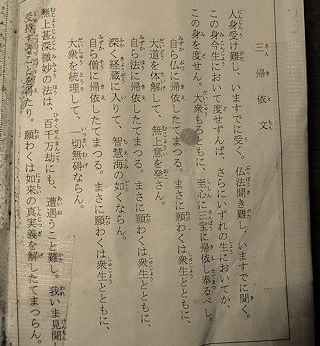 三帰依文
人身受け難し、いますでに受く。仏法聞き難し、いますでに聞く。
この身今生において度せずんば、さらにいずれの生においてか、
この身を度せん。大衆もろともに、至心に三宝に帰依し奉るべし。
自ら仏に帰依したてまつる。まさに願わくは衆生とともに、
大道を体解して、無上意を発さん。
自ら法に帰依したてまつる。まさに願わくは衆生とともに、
深く経蔵に入りて、智慧海のごとくならん。
自ら僧に帰依したてまつる。まさに願わくは衆生とともに、
大衆を統理して、一切無碍ならん。
無上甚深微妙の法は、百千万劫にも、遭遇うこと難し。我いま見聞し
受持することを得たり。願わくは如来の真実義を解したてまつらん。